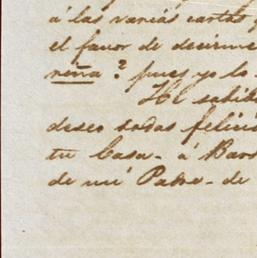 á las varias cartas
el favor de decirme
neña? pues yo lo
He sabido
deseo todas felici
tu Casa - á Bar
de mi Padre - de